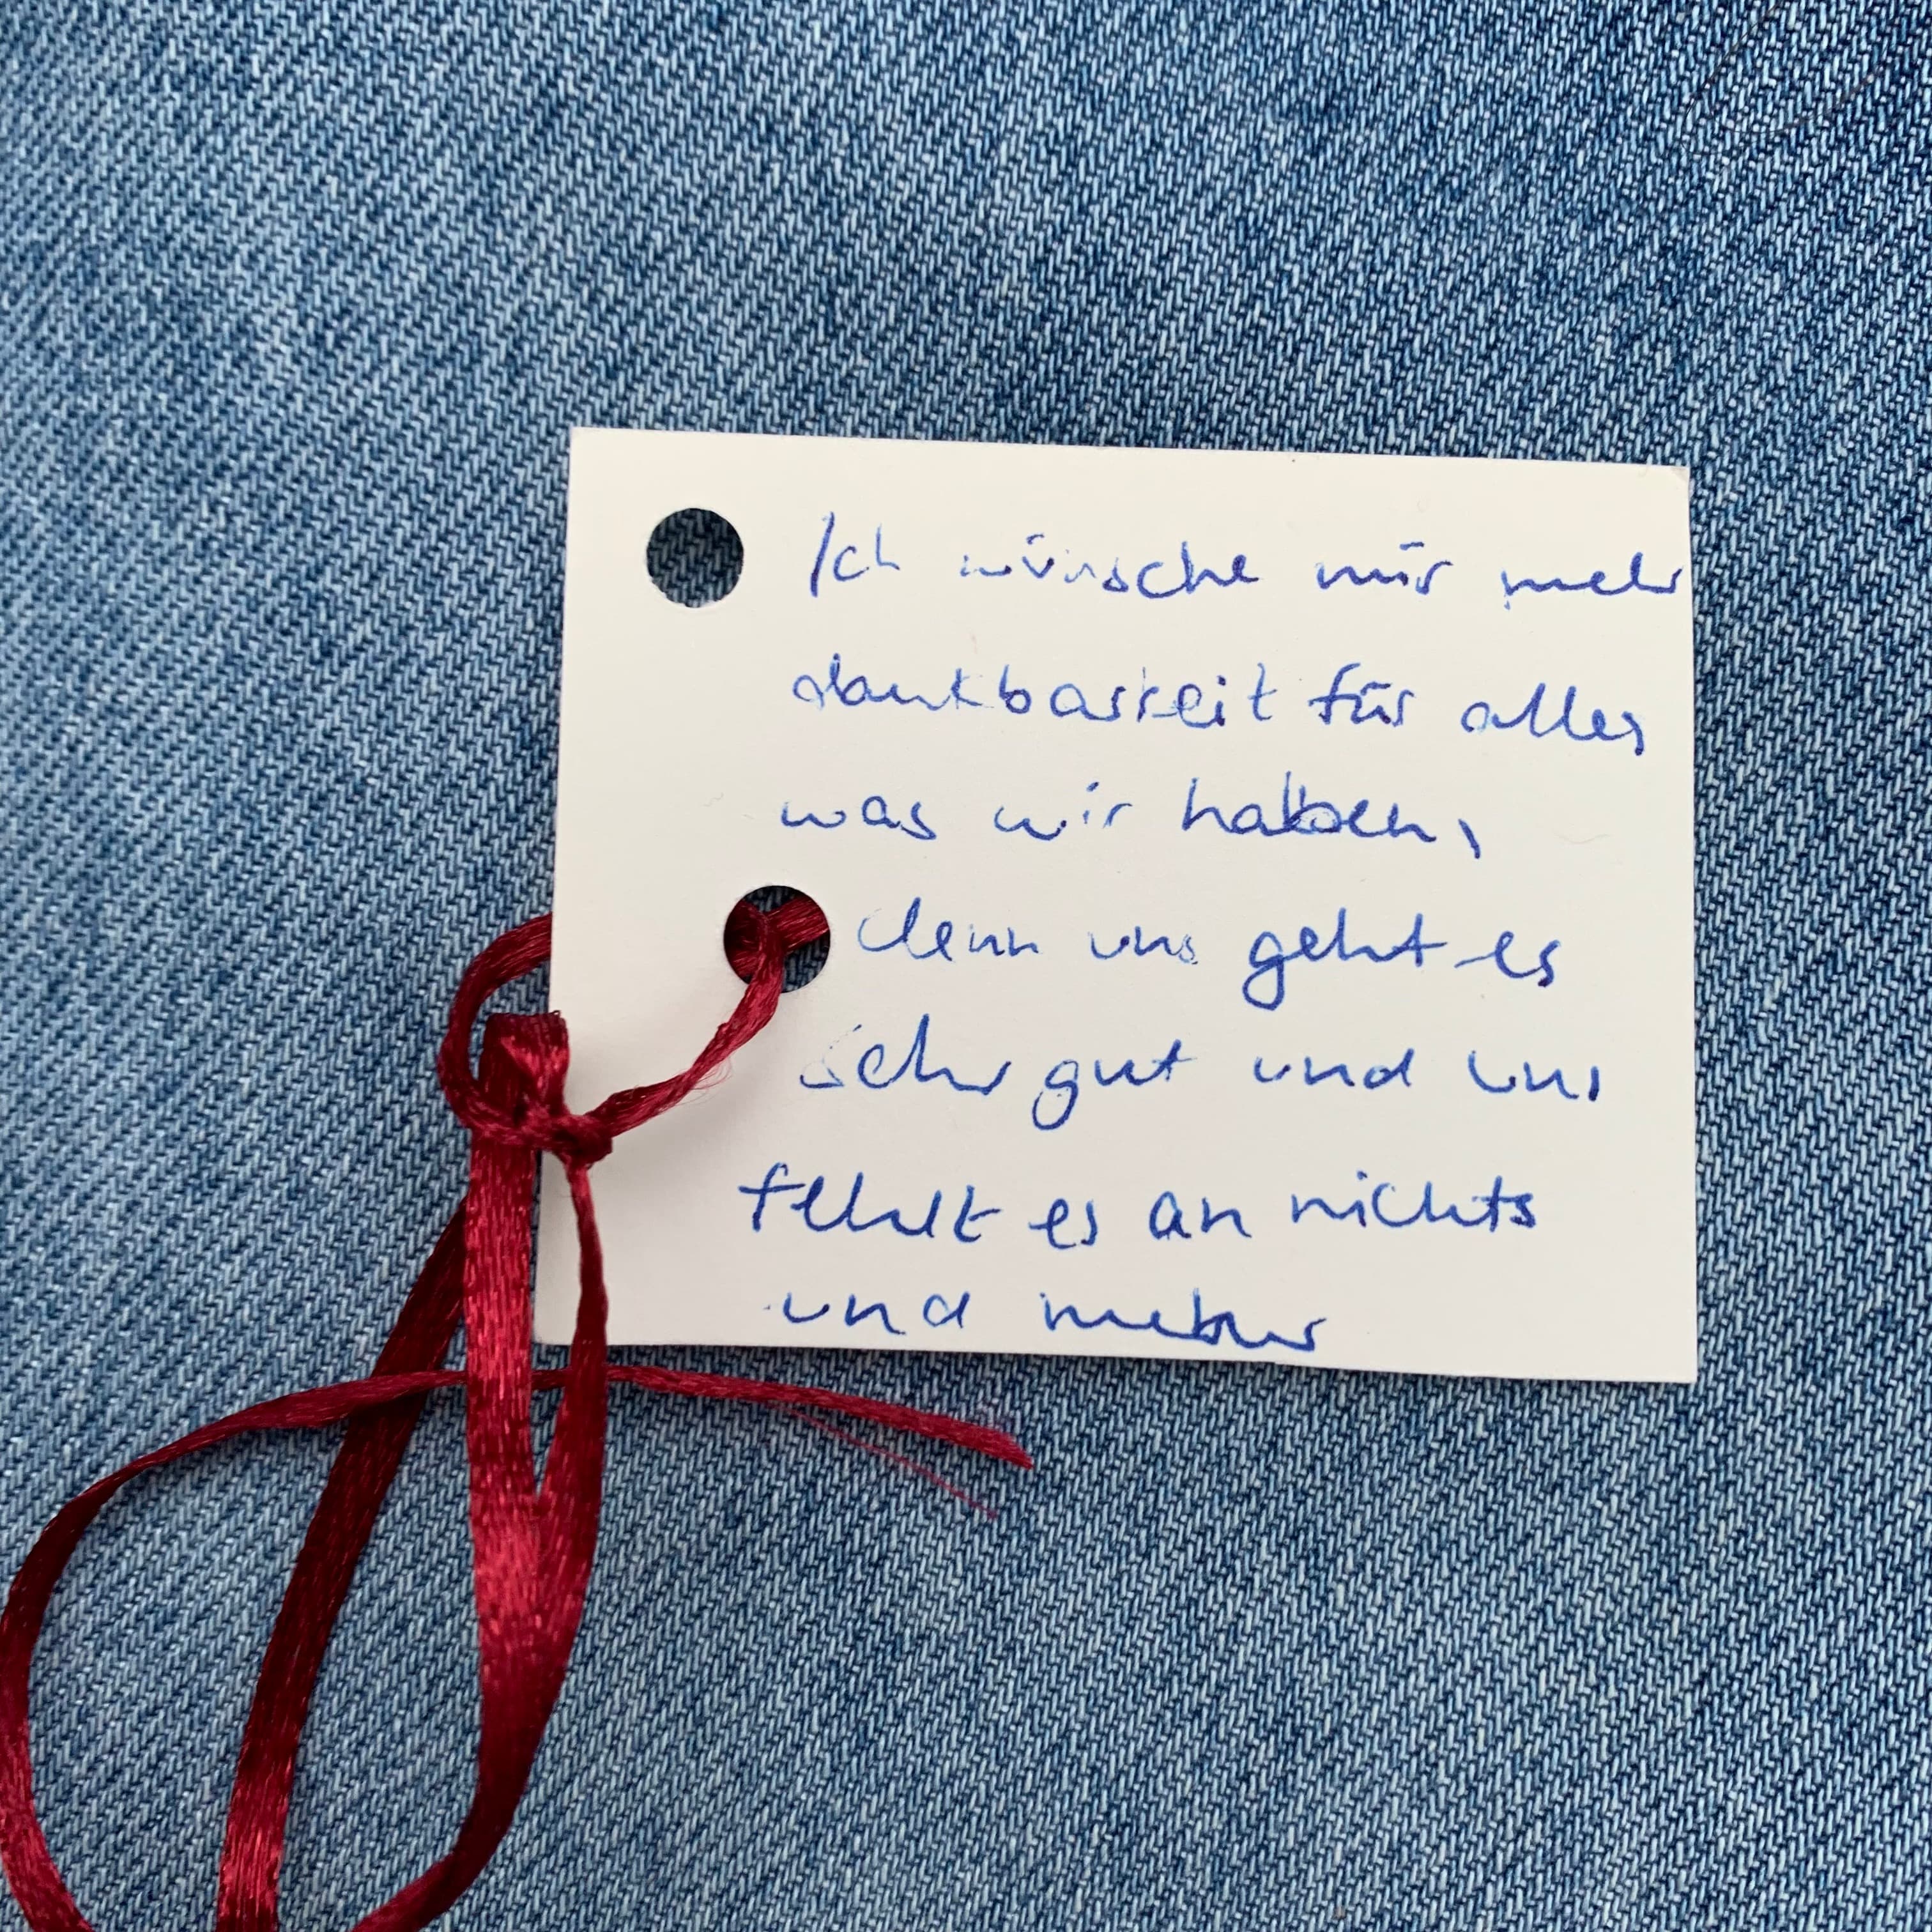 Ich wünsche mir mehr
dankbarkeit für alles
was wir haben,
denn uns geht es
sehr gut und uns
fehlt es an nichts
und